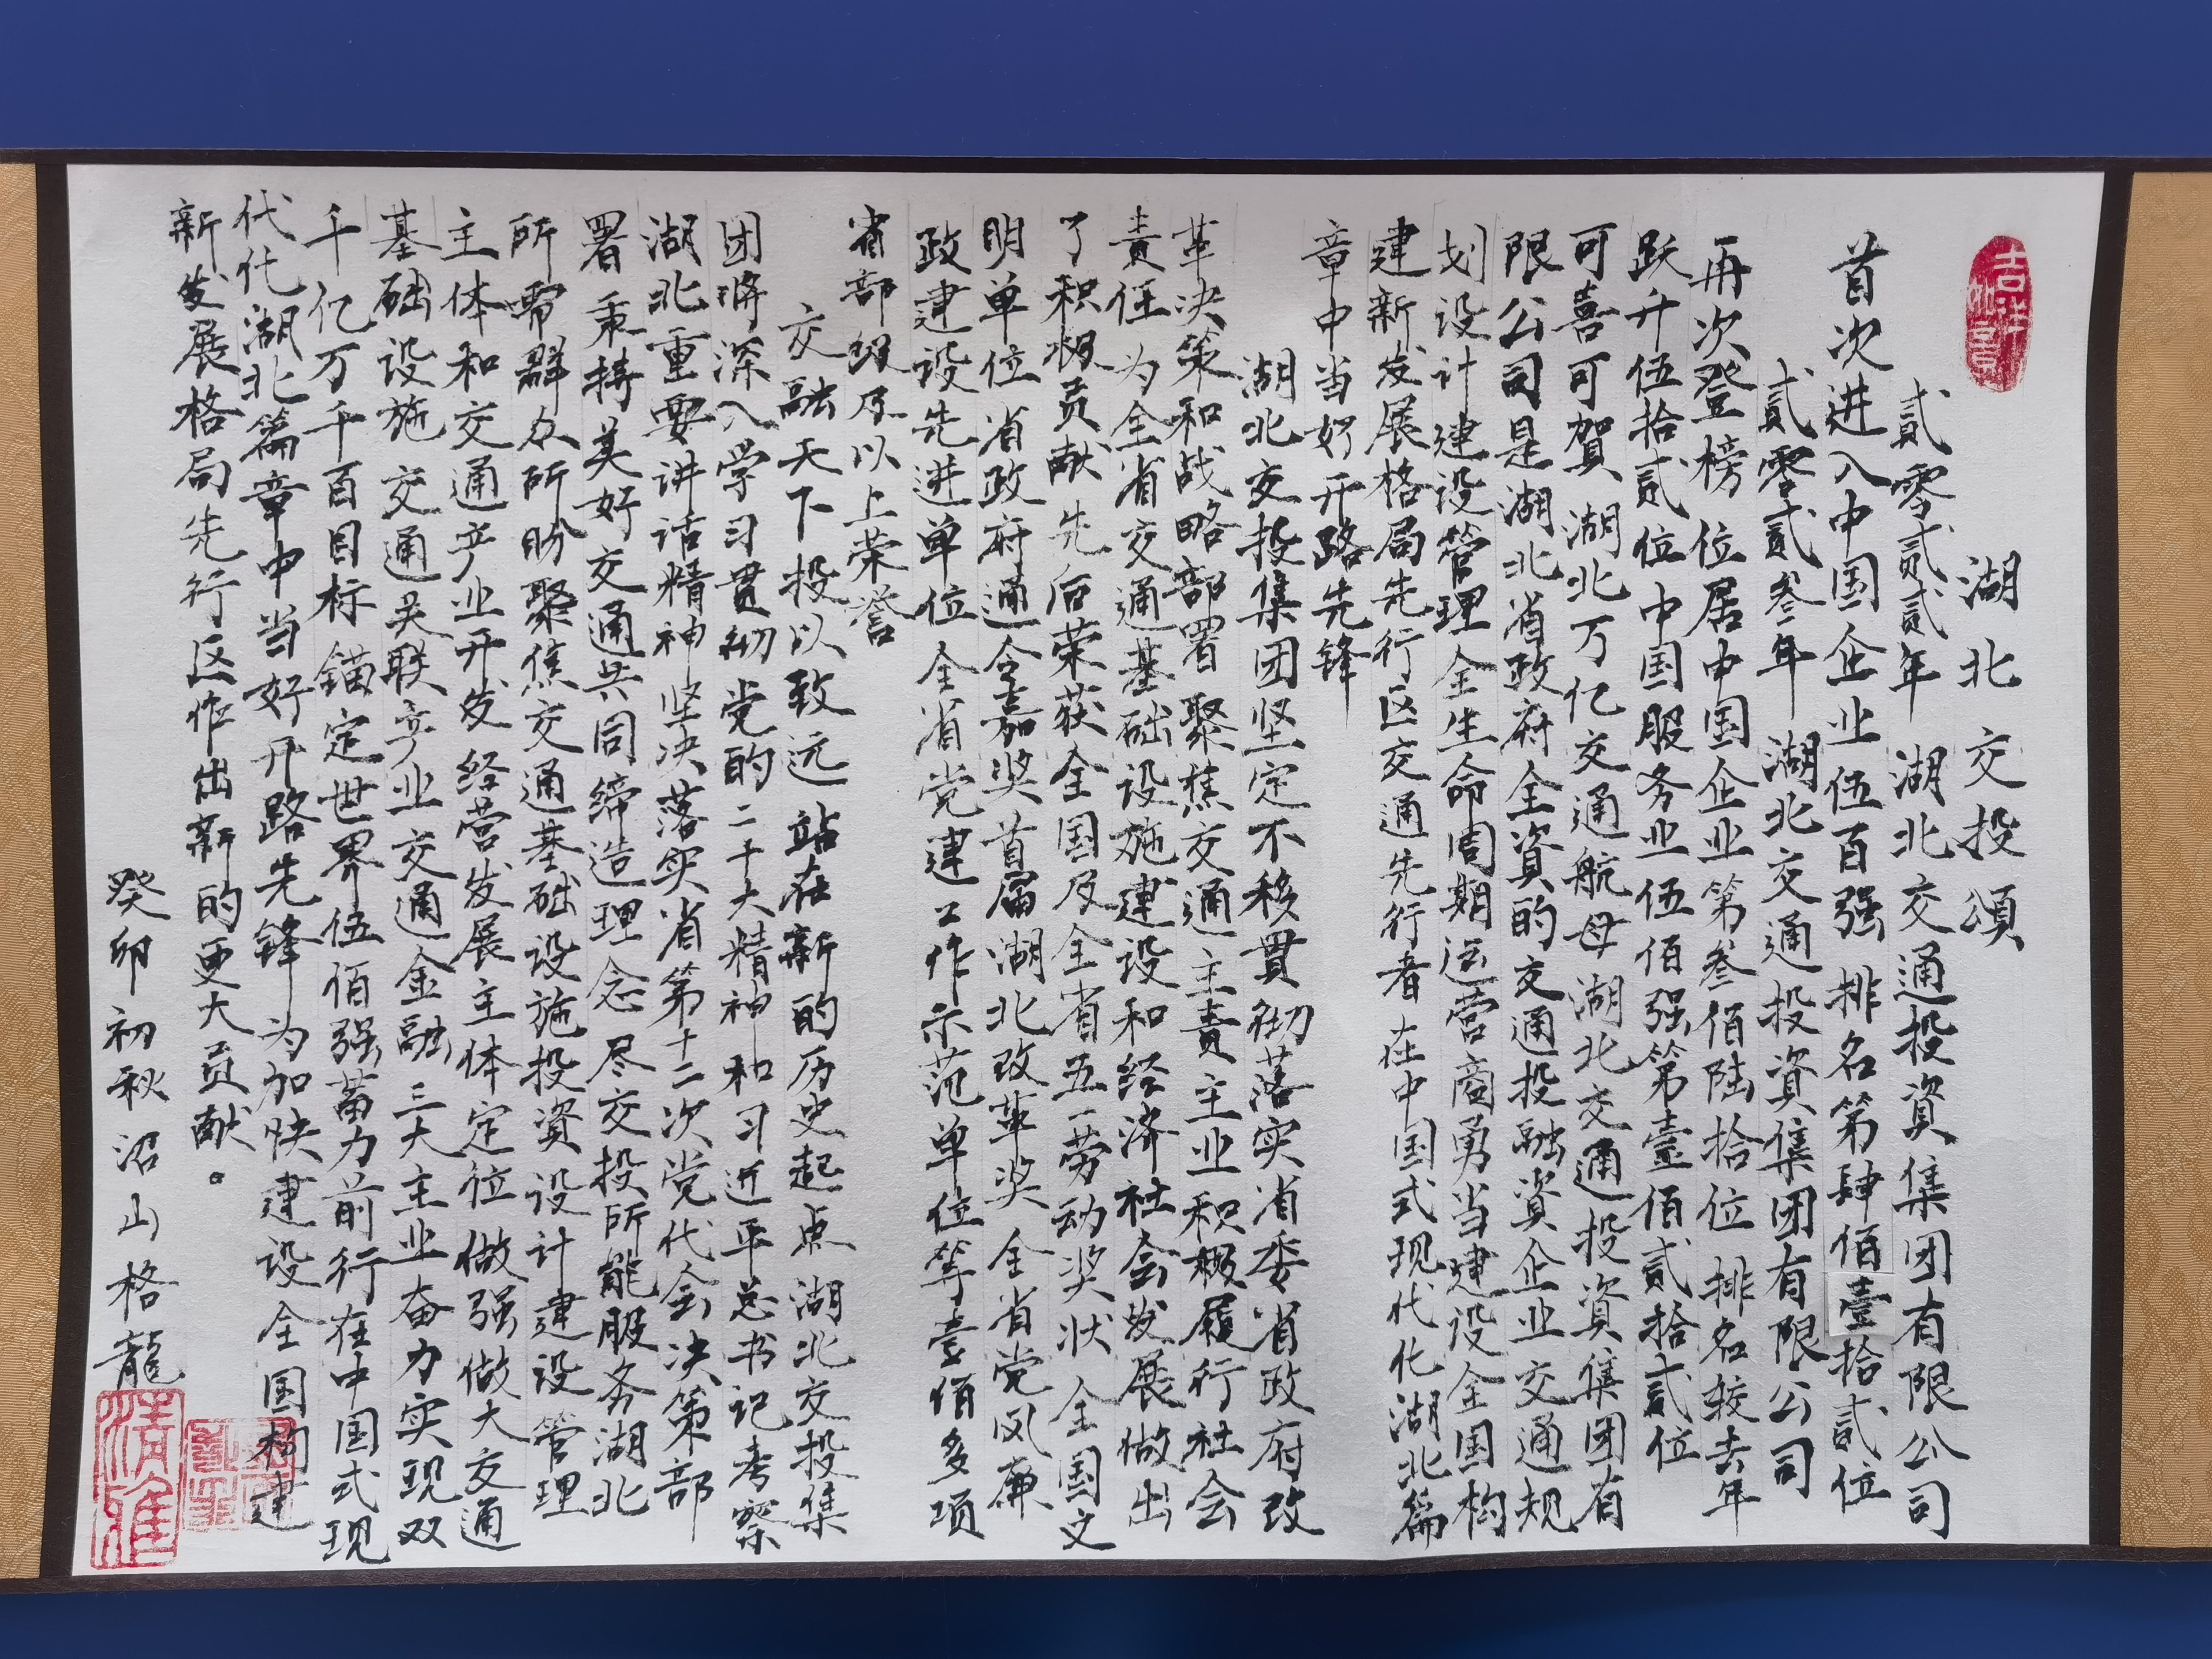 吉祥如意
湖北交投颂
贰零贰贰年 湖北交通投資集团有限公司
首次进入中国企业伍百强 排名第肆佰壹拾贰位
贰零贰叁年 湖北交通投資集团有限公司
再次登榜 位居中国企业第叁佰陆拾位 排名较去年
跃升伍拾贰位 中国服务业伍佰强第壹佰贰拾贰位
可喜可賀 湖北万亿交通航母湖北交通投資集团有
限公司是湖北省政府全資的交通投融資企业交通规
划设计建设管理全生命周期运营商勇当建设全国构
建新发展格局先行区交通先行者 在中国式现代化湖北篇
章中当好开路先锋
湖北交投集团坚定不移贯彻落实省委省政府改
革决策和战略部署 聚焦交通主责主业积极履行社会
责任 为全省交通基础设施建设和经济社会发展做出
了积极贡献 先后荣获全国及全省五一劳动奖状 全国文
明单位 省政府通令嘉奖 首届湖北改革奖 全省党风廉
政建设先进单位 全省党建工作示范单位等壹佰多项
省部级及以上荣誉
交融天下 投以致远 站在新的历史起点 湖北交投集
团将深入学习贯彻党的二十大精神 和习近平总书记考察
湖北重要讲话精神 坚决落实省第十二次党代会决策部
署 秉持美好交通共同缔造理念 尽交投所能服务湖北
所需群众所盼 聚焦交通基础设施投資设计建设管理
主体和交通产业开发经营发展主体定位 做强做大交通
基础设施 交通关联产业 交通金融三大主业 奋力实现双
千亿万千百目标 锚定世界伍佰强蓄力前行 在中国式现
代代湖北篇章中当好开路先锋 为加快建设全国构建
新发展格局先行区作出新的更大贡献。
癸卯初秋沼山格龍
清雅